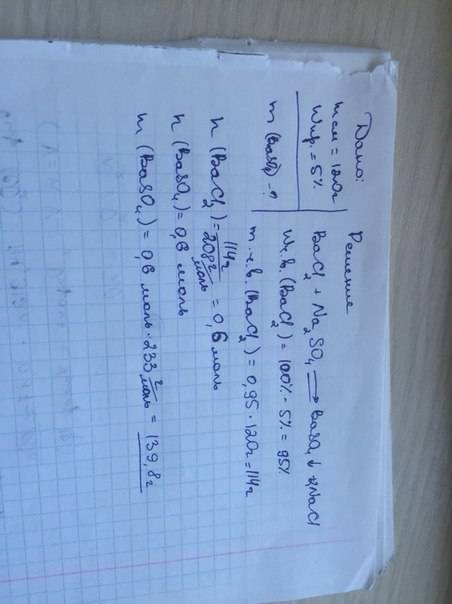 Дано:
mсм = 120г
Wпр. = 5%
m (BaSO₄) - ?
Решение
BaCl₂ + Na₂SO₄ ⟶ BaSO₄↓ + 2NaCl
Wч.в. (BaCl₂) = 100% - 5% = 95%
m.ч.в. (BaCl₂) = 0,95 · 120г = 114г
n (BaCl₂) = 114г / 208 г/моль = 0,6 моль
n (BaSO₄) = 0,6 моль
m (BaSO₄) = 0,6 моль · 233 г/моль = 139,8г